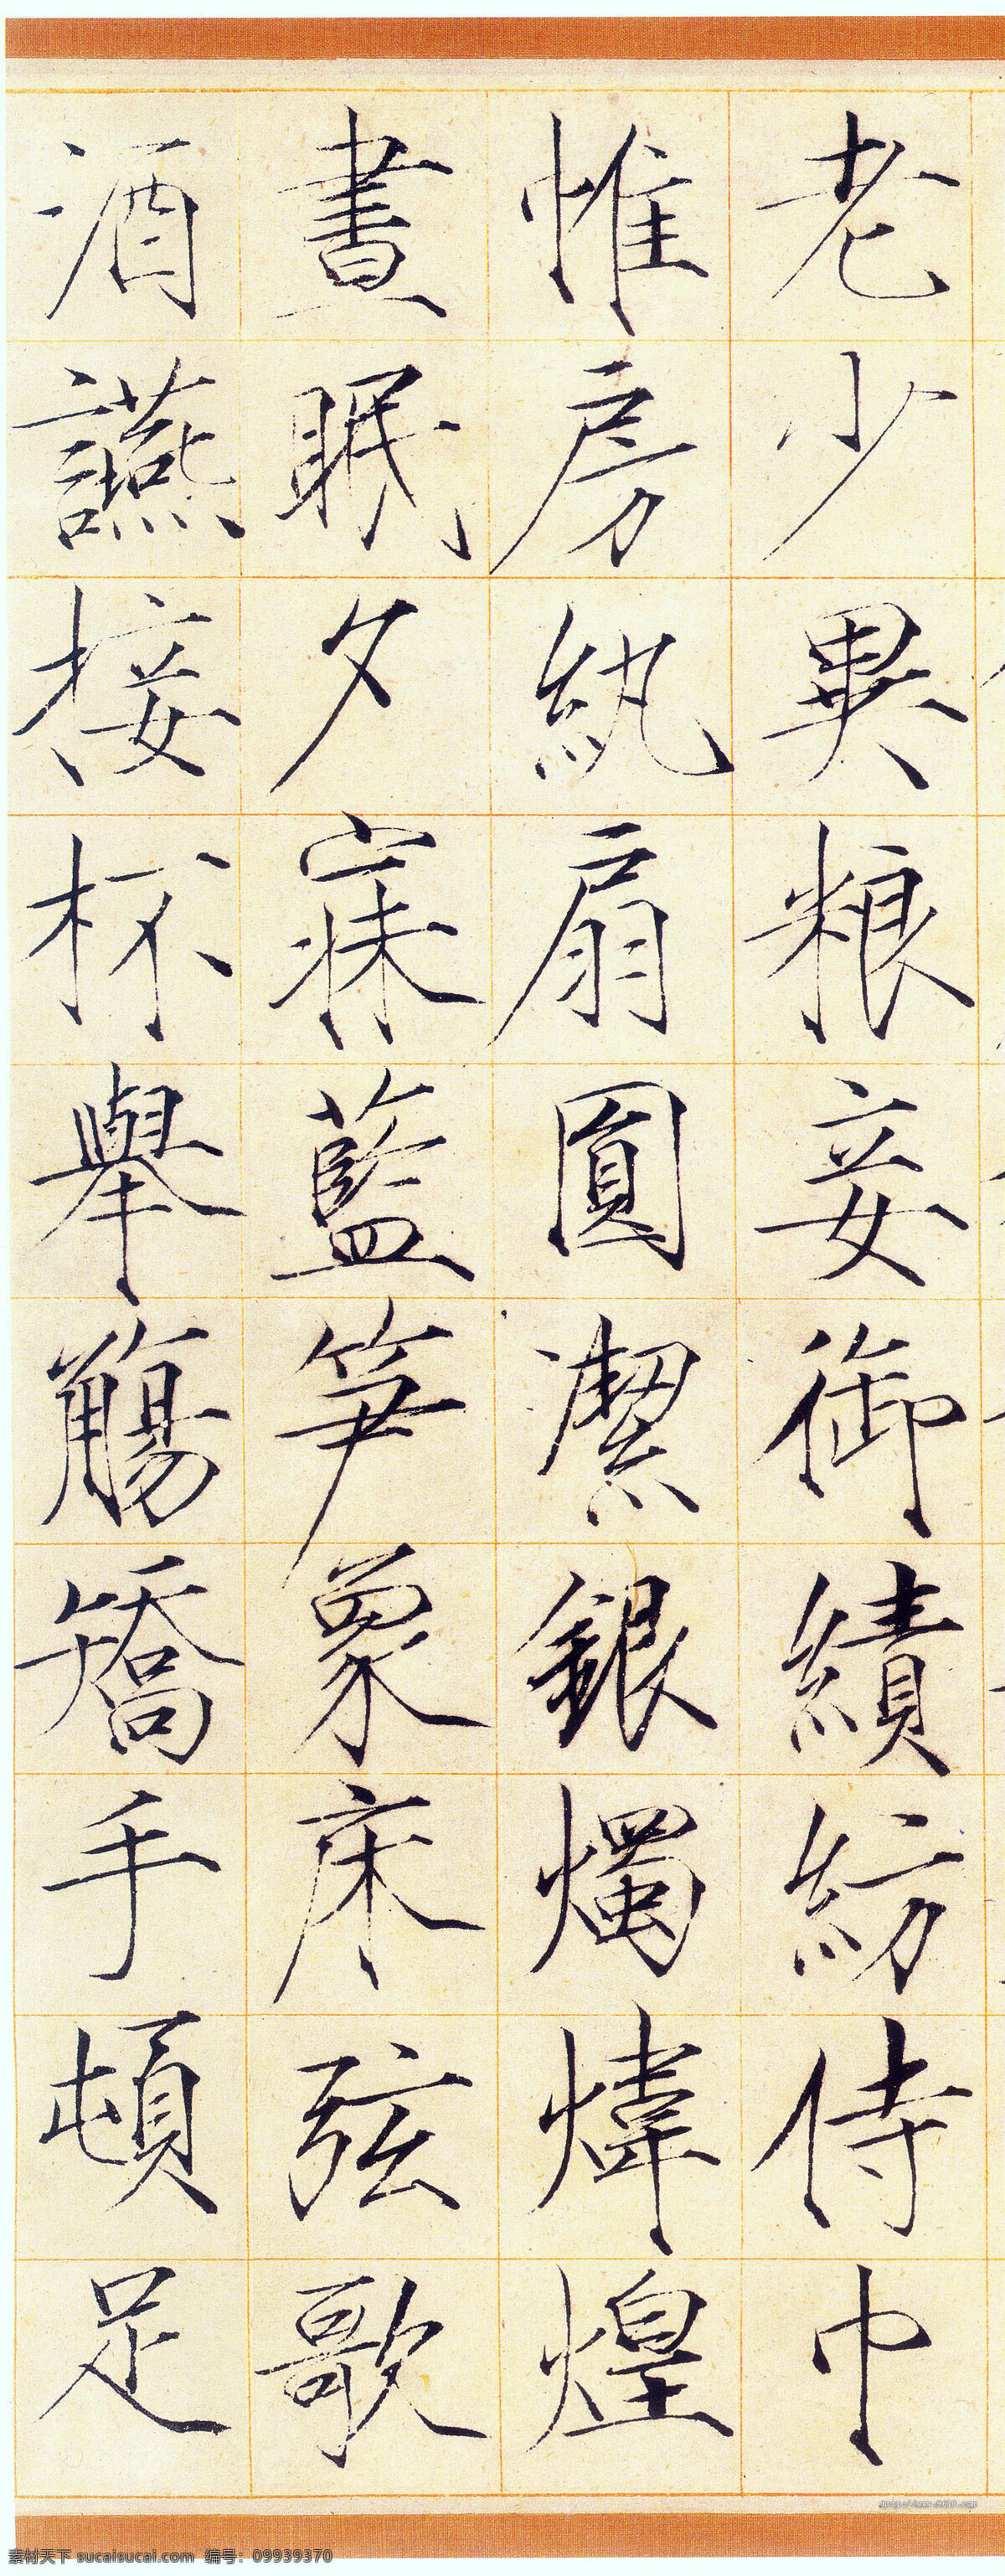 老少異粮妾御績紡侍巾
惟房紈扇圓潔銀燭煒煌
晝眠夕寐藍笋象床弦歌
酒讌接杯舉觴矯手頓足
素材天下 sucaisucai.com 编号：09939370